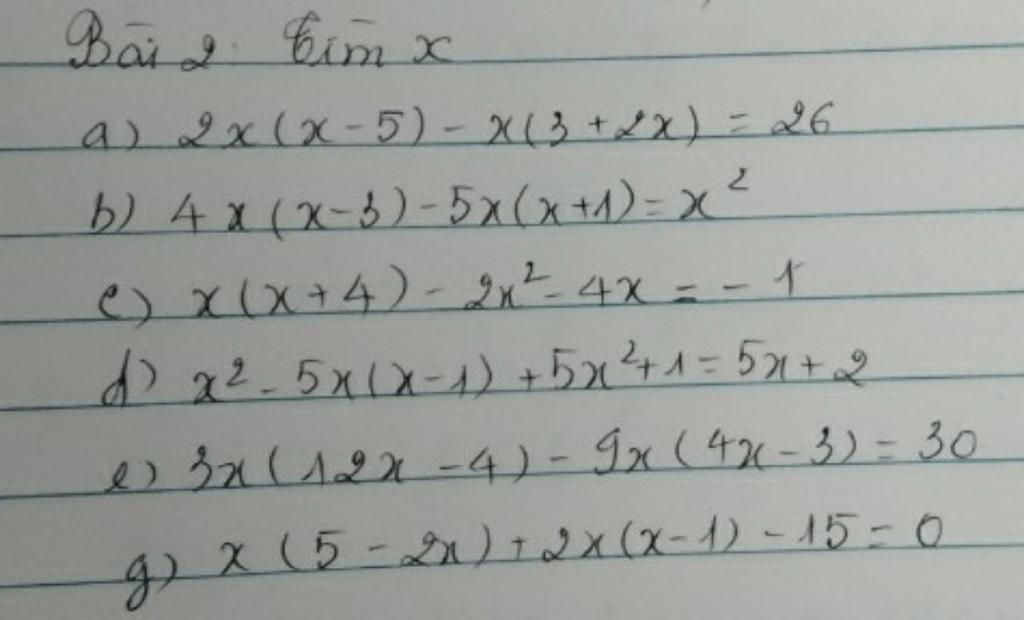 Bài 2. Tìm x
a) 2x(x-5) - x(3+2x) = 26
b) 4x(x-3) - 5x(x+1) = x²
c) x(x+4) - 2x² - 4x = -1
d) x² - 5x(x-1) + 5x² + 1 = 5x + 2
e) 3x(12x-4) - 9x(4x-3) = 30
g) x(5-2x) + 2x(x-1) - 15 = 0